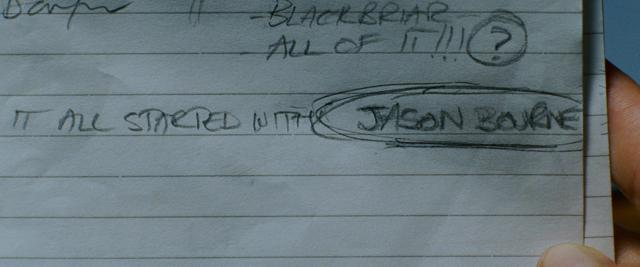 - BLACKBRIAR
- ALL OF IT!!! ?
IT ALL STARTED WITH JASON BOURNE